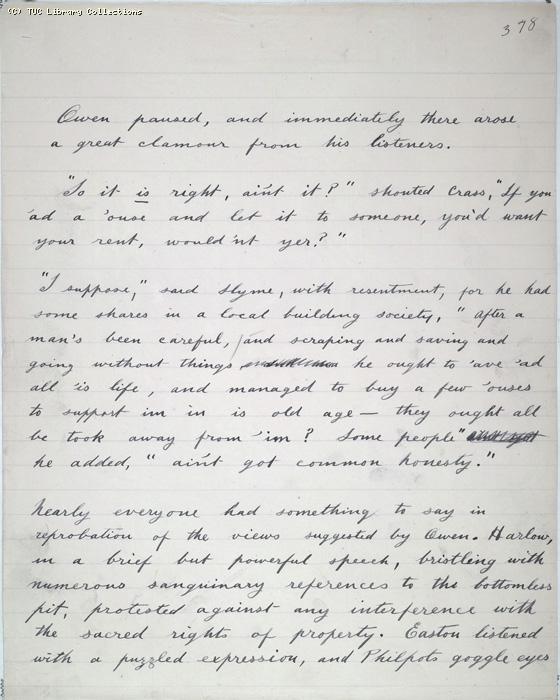 (C) TUC Library Collections
378
Owen paused, and immediately there arose
a great clamour from his listeners.
"So it is right, ain't it?" shouted Crass, "If you
'ad a 'ouse and let it to someone, you'd want
your rent, would'nt yer?"
"I suppose," said Slyme, with resentment, for he had
some shares in a local building society, "after a
man's been careful, and scraping and saving and
going without things he ought to 'ave 'ad
all 'is life, and managed to buy a few 'ouses
to support im in is old age — they ought all
be took away from 'im? Some people"
he added, "ain't got common honesty."
Nearly everyone had something to say in
reprobation of the views suggested by Owen. Harlow,
in a brief but powerful speech, bristling with
numerous sanguinary references to the bottomless
pit, protested against any interference with
the sacred rights of property. Easton listened
with a puzzled expression, and Philpots goggle eyes